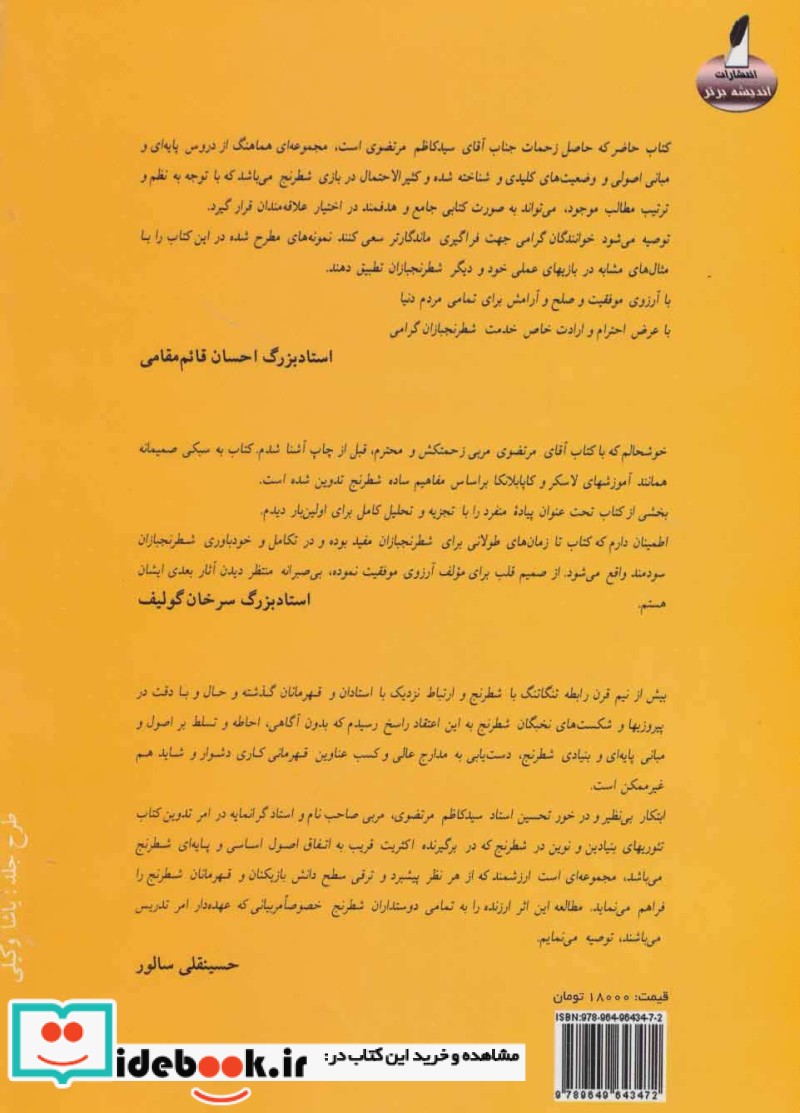 انتشارات
اندیشه برتر
کتاب حاضر که حاصل زحمات جناب آقای سیدکاظم مرتضوی است، مجموعه‌ای هماهنگ از دروس پایه‌ای و
مبانی اصولی و وضعیت‌های کلیدی و شناخته شده و کثیرالاحتمال در بازی شطرنج می‌باشد که با توجه به نظم و
ترتیب مطالب موجود، می‌تواند به صورت کتابی جامع و هدفمند در اختیار علاقه‌مندان قرار گیرد.
توصیه می‌شود خوانندگان گرامی جهت فراگیری ماندگارتر سعی کنند نمونه‌های مطرح شده در این کتاب را با
مثال‌های مشابه در بازیهای عملی خود و دیگر شطرنجبازان تطبیق دهند.
با آرزوی موفقیت و صلح و آرامش برای تمامی مردم دنیا
با عرض احترام و ارادت خاص خدمت شطرنجبازان گرامی
استادبزرگ احسان قائم‌مقامی
خوشحالم که با کتاب آقای مرتضوی مربی زحمتکش و محترم، قبل از چاپ آشنا شدم. کتاب به سبکی صمیمانه
همانند آموزشهای لاسکر و کاپابلانکا براساس مفاهیم ساده شطرنج تدوین شده است.
بخشی از کتاب تحت عنوان پیادهٔ منفرد را با تجزیه و تحلیل کامل برای اولین‌بار دیدم.
اطمینان دارم که کتاب تا زمان‌های طولانی برای شطرنجبازان مفید بوده و در تکامل و خودباوری شطرنجبازان
سودمند واقع می‌شود. از صمیم قلب برای مؤلف آرزوی موفقیت نموده، بی‌صبرانه منتظر دیدن آثار بعدی ایشان
هستم.
استادبزرگ سرخان گولیف
بیش از نیم قرن رابطه تنگاتنگ با شطرنج و ارتباط نزدیک با استادان و قهرمانان گذشته و حال و با دقت در
پیروزیها و شکست‌های نخبگان شطرنج به این اعتقاد راسخ رسیدم که بدون آگاهی، احاطه و تسلط بر اصول و
مبانی پایه‌ای و بنیادی شطرنج، دست‌یابی به مدارج عالی و کسب عناوین قهرمانی کاری دشوار و شاید هم
غیرممکن است.
ابتکار بی‌نظیر و در خور تحسین استاد سیدکاظم مرتضوی، مربی صاحب نام و استاد گرانمایه در امر تدوین کتاب
تئوریهای بنیادین و نوین در شطرنج که در برگیرنده اکثریت قریب به اتفاق اصول اساسی و پایه‌ای شطرنج
می‌باشد، مجموعه‌ای است ارزشمند که از هر نظر پیشبرد و ترقی سطح دانش بازیکنان و قهرمانان شطرنج را
فراهم می‌نماید. مطالعه این اثر ارزنده را به تمامی دوستداران شطرنج خصوصاً مربیانی که عهده‌دار امر تدریس
می‌باشند، توصیه می‌نمایم.
حسینقلی سالور
طرح جلد: یاشا وکیلی
قیمت: ۱۸۰۰۰ تومان
ISBN:978-964-96434-7-2
9 789649 643472
مشاهده و خرید این کتاب در:
idebook.ir